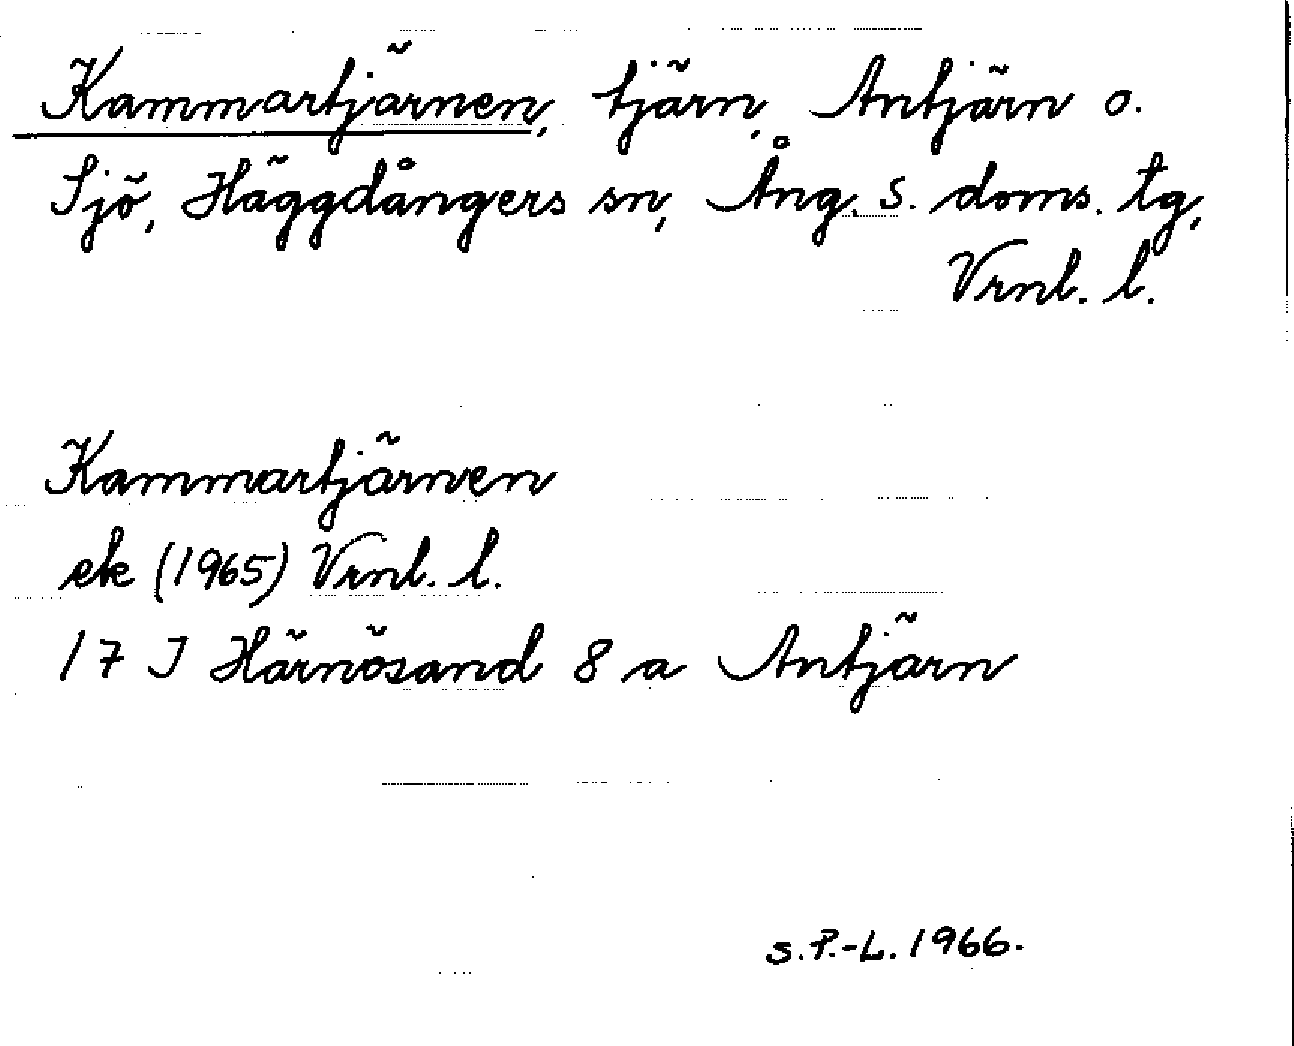 Kammartjärnen, tjärn, Antjärn o.
Sjö, Häggdångers sn, Ång. s. doms. tg,
Vrnl. l.
Kammartjärnen
ek (1965) Vrnl. l.
17 I Härnösand 8 a Antjärn
S.P.-L. 1966.